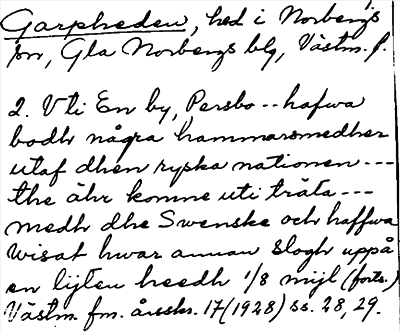 Garpheden, hed i Norbergs
sn, Gla Norbergs blg, Västm. l.
2. Vti En by, Persbo -- hafwa
bodh några hammarsmedher
utaf dhen ryska nationen ---
the ähr komne uti träta ---
medh dhe Swenske och haffwa
wisat hwar annan slogh uppå
en lijten heedh 1/8 mijl (forts.)
Västm. fm. årsskr. 17 (1928) ss. 28, 29.